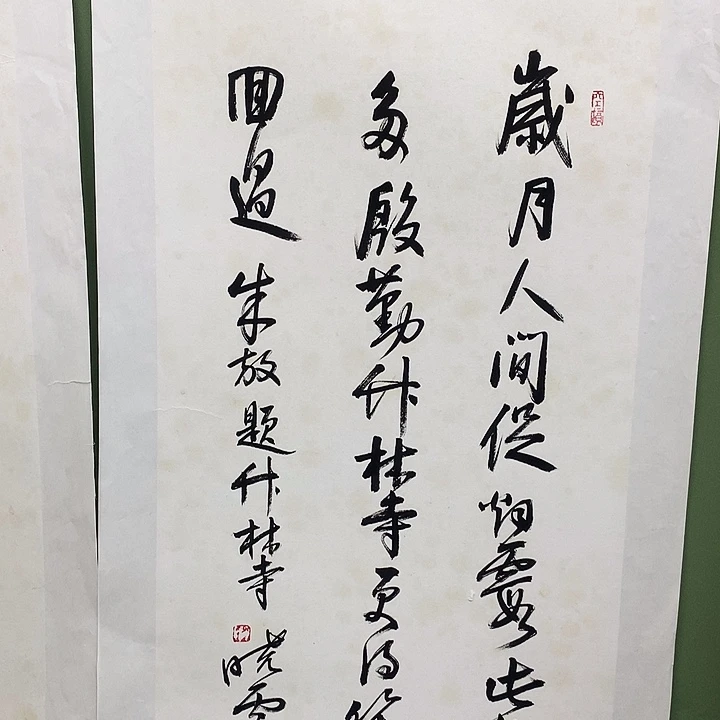 歲月人間促烟霞此
多殷勤竹林寺更得
回過 朱放題竹林寺 晓雲